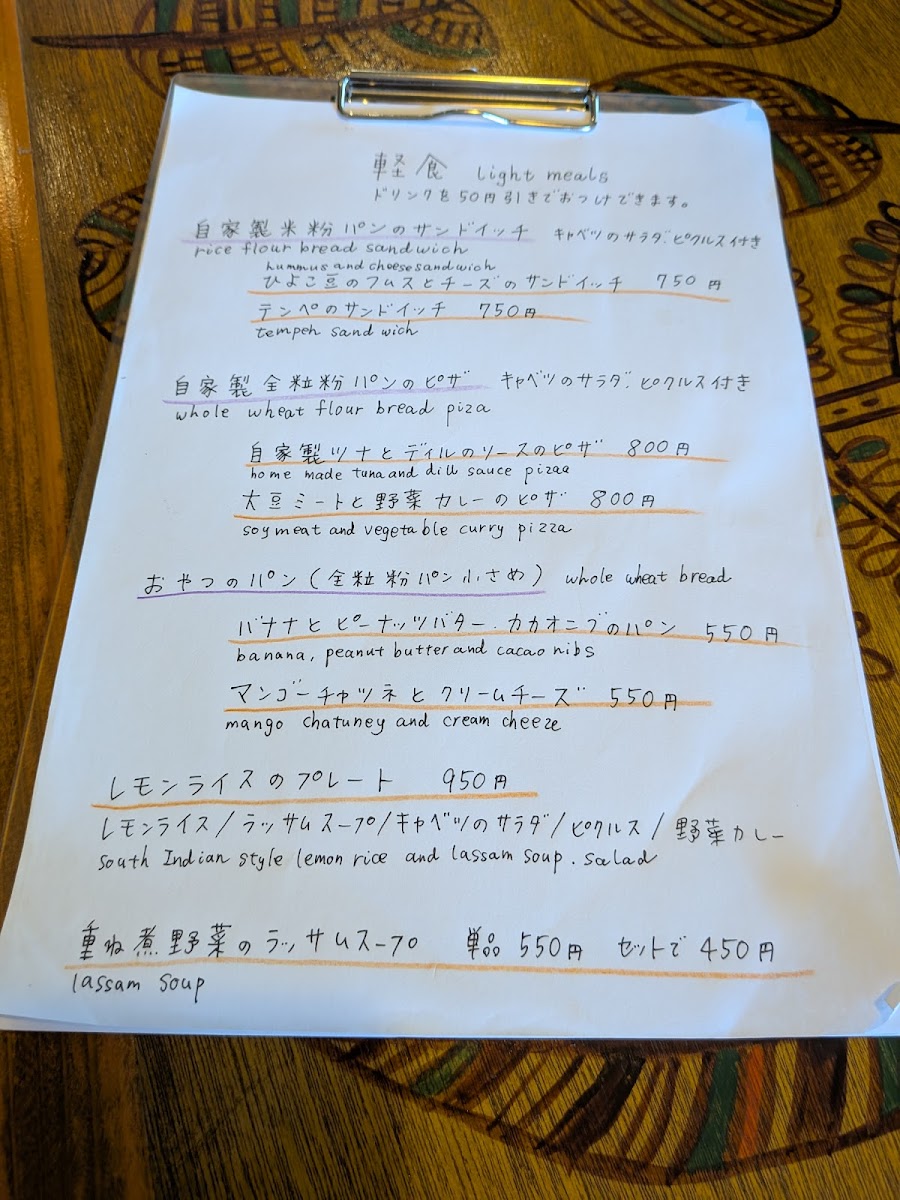 軽食 Light meals
ドリンクを50円引きでおつけできます。
自家製米粉パンのサンドイッチ キャベツのサラダ.ピクルス付き
rice flour bread sandwich
hummus and cheese sandwich
ひよこ豆のフムスとチーズのサンドイッチ 750円
テンペのサンドイッチ 750円
tempeh sandwich
自家製全粒粉パンのピザ キャベツのサラダ.ピクルス付き
whole wheat flour bread piza
自家製ツナとディルのソースのピザ 800円
home made tuna and dill sauce pizaa
大豆ミートと野菜カレーのピザ 800円
soy meat and vegetable curry pizza
おやつのパン(全粒粉パン小さめ) whole wheat bread
バナナとピーナッツバター.カカオニブのパン 550円
banana, peanut butter and cacao nibs
マンゴーチャツネとクリームチーズ 550円
mango chatuney and cream cheeze
レモンライスのプレート 950円
レモンライス/ラッサムスープ/キャベツのサラダ/ピクルス/野菜カレー
south Indian style lemon rice and lassam soup. salad
重ね煮野菜のラッサムスープ 単品 550円 セットで 450円
lassam soup